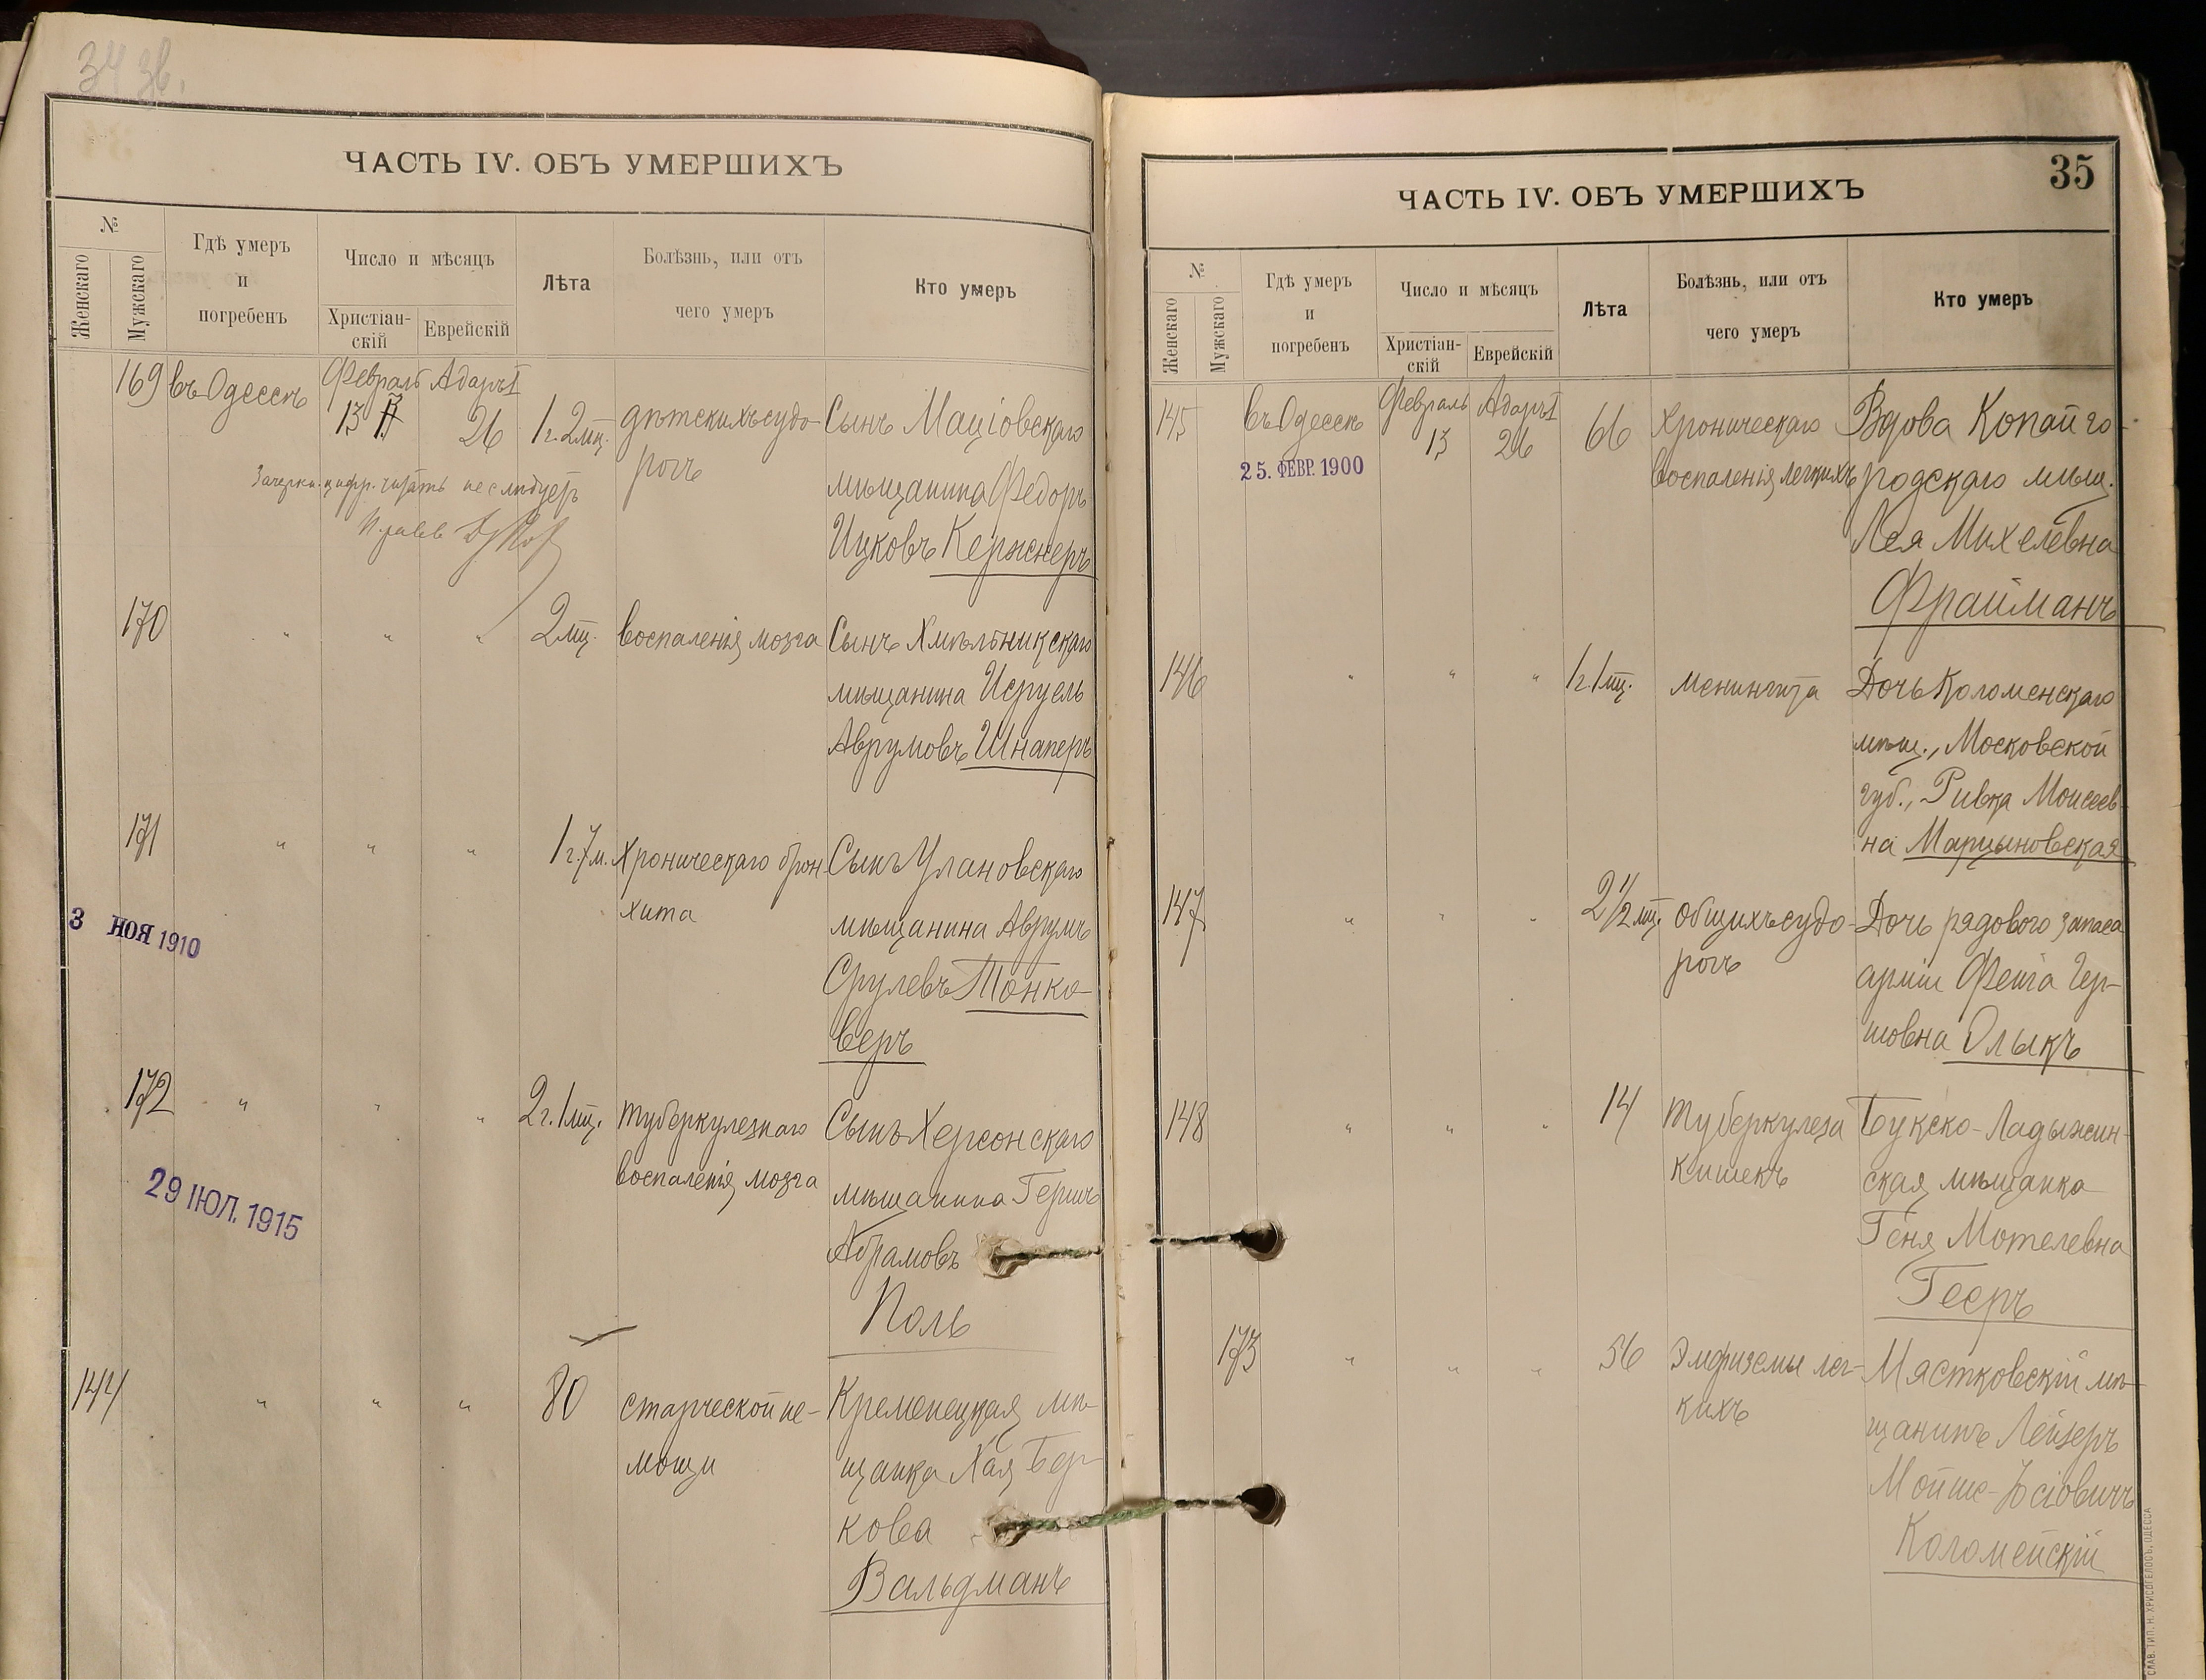 34 зв.
ЧАСТЬ IV. ОБЪ УМЕРШИХЪ
№
Женскаго
Мужскаго
Гдѣ умеръ
и
погребенъ
Число и мѣсяцъ
Христіан-
скій
Еврейскій
Лѣта
Болѣзнь, или отъ
чего умеръ
Кто умеръ
169 въ Одессѣ Февраль Адаръ I
13 26 1 г. 2 мц. дѣтскихъ судо- Сынъ Маціовскаго
рогъ мѣщанина Федоръ
Зачеркн. цифр. читать не слѣдуетъ
Ицковъ Кержнеръ
170 " " " 2 мц. воспаленія мозга Сынъ Хмѣльникскаго
мѣщанина Исруель
Аврумовъ Шнаперъ
171 " " " 1 г. 7 м. Хроническаго брон- Сынъ Улановскаго
хита мѣщанина Аврумъ
3 НОЯ 1910
Срулевъ Тонко-
веръ
172 " " " 2 г. 1 мц. туберкулезнаго Сынъ Херсонскаго
воспаленія мозга мѣщанина Гершъ
29 ІЮЛ. 1915
Абрамовъ
Поль
144 " " " 80 старческой не- Кременецкая мѣ-
мощи щанка Хая Бер-
кова
Вальдманъ
35
ЧАСТЬ IV. ОБЪ УМЕРШИХЪ
№
Женскаго
Мужскаго
Гдѣ умеръ
и
погребенъ
Число и мѣсяцъ
Христіан-
скій
Еврейскій
Лѣта
Болѣзнь, или отъ
чего умеръ
Кто умеръ
145 въ Одессѣ Февраль Адаръ I
13 26 66 Хроническаго Вдова Копайго-
25. ФЕВР. 1900
воспаленія легкихъ родскаго мѣщ.
Лея Михелевна
Фрайманъ
146 " " " 1 г. 1 мц. менингита Дочь Коломенскаго
мѣщ., Московской
губ., Ривка Моисеев-
на Марцыновская
147 " " " 2 1/2 мц. общихъ судо- Дочь рядового запаса
рогъ арміи Фейга Гер-
шовна Олыкъ
148 " " " 14 туберкулеза Букско-Ладыжин-
кишекъ ская мѣщанка
Геня Мотелевна
Гееръ
173 " " " 56 Эмфиземы лег- Мястковскій мѣ-
кихъ щанинъ Лейзеръ
Мойше-Іосіовичъ
Коломейскій
СЛАВ. ТИП. Н. ХРИСОГЕЛОСЪ, ОДЕССА